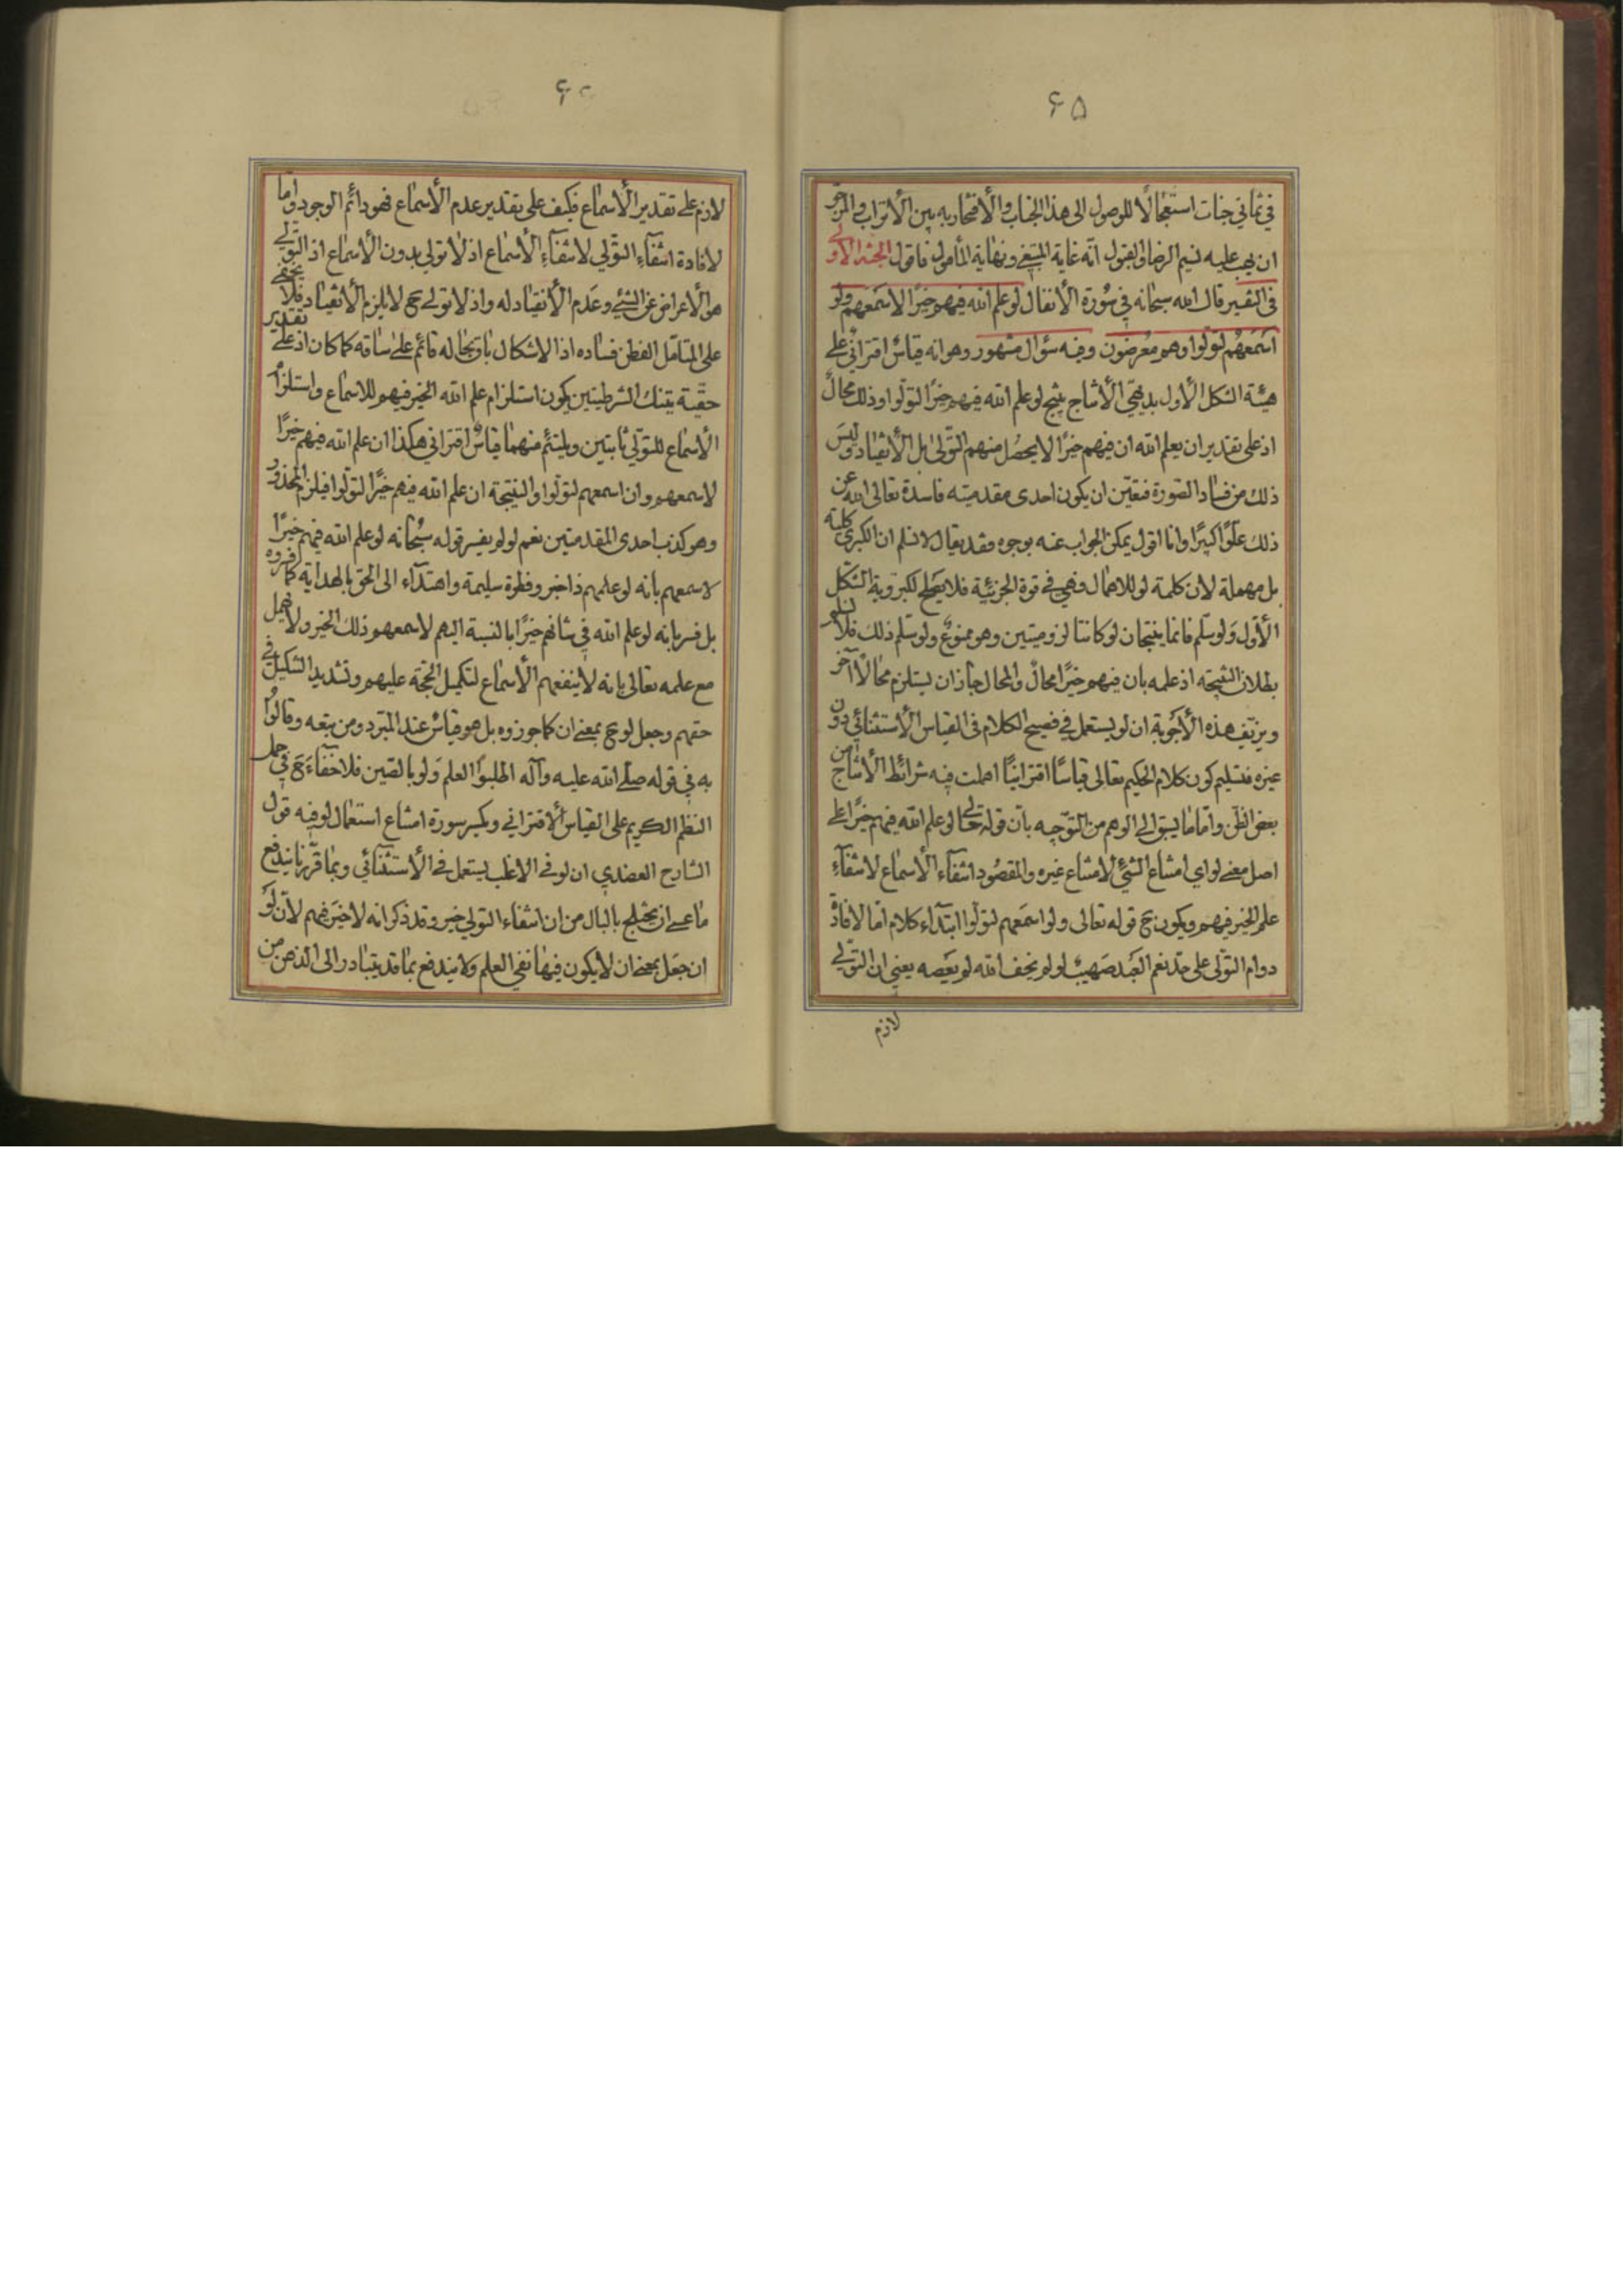 ۶۵
في ثماني جنات استعجالا للوصول الى هذا الجناب والافتخار به بين الاتراب والمرجو
ان يهب عليه نسيم الرضا والقبول انه غاية المبتغى ونهاية المأمول فاقول المبحث الاولى
في التفسير قال الله سبحانه في سورة الأنفال لو علم الله فيهم خيرًا لاسمعهم ولو
اسمعهم لتولوا وهم معرضون وفيه سؤال مشهور وهو انه قياسٌ اقترانيٌ على
هيئة الشكل الأول بديهي الأنتاج ينتج لو علم الله فيهم خيرًا لتولوا وذلك محالٌ
اذ على تقدير ان يعلم الله ان فيهم خيرًا لا يحصل منهم التولى بل الأنقياد وليس
ذلك من فساد الصورة فتعين ان يكون احدى مقدمتيه فاسدة تعالى الله عن
ذلك علوًا كبيرًا وانا اقول يمكن الجواب عنه بوجوه فقد يقال لا نسلم ان الكبرى كلية
بل مهملة لأن كلمة لو للاهمال وهي في قوة الجزئية فلا يصلح لكبروية الشكل
الأول ولو سلم فانما ينتجان لو كانتا لزوميتين وهو ممنوعٌ ولو سلم ذلك فلا نسلم
بطلان النتيجة اذ علمه بان فيهم خيرًا محالٌ والمحال جاز ان يستلزم محالًا آخر
ويزيّف هذه الأجوبة ان لو يستعمل في فصيح الكلام في القياس الأستثنائي دون
غيره فتسليم كون كلام الحكيم تعالى قياسًا اقترانيًا اهملت فيه شرائط الأنتاج من
بعض الظن واما ما يسبق الى الوهم من التوجيه بأن قوله تعالى لو علم الله فيهم خيرًا على
اصل معنى لو اي امتناع الشئ لامتناع غيره والمقصود انتفآء الأسماع لانتفآء
علم الخير فيهم ويكون ح قوله تعالى ولو اسمعهم لتولوا ابتدآء كلام اما لافادة
دوام التولى على حد نعم العبد صهيب لو لم يخف الله لم يعصه يعنى ان التولى
لازم
لازم على تقدير الأسماع فكيف على تقدير عدم الأسماع فهو دائم الوجود واما
لافادة انتفآء التولي لانتفآء الأسماع اذ لا تولي بدون الأسماع اذ التولى
هو الأعراض عن الشئ وعدم الأنقياد له واذ لا تولى ح لا يلزم الأنقياد فلا يخفى
على المتأمل الفطن فساده اذ الاشكال باق بحاله قائم على ساقه كما كان اذ على تقدير
حقية تينك الشرطيتين يكون استلزام علم الله الخير فيهم للاسماع واستلزام
الأسماع للتولى ثابتين ويلتئم منهما قياسٌ اقتراني هكذا ان علم الله فيهم خيرًا
لاسمعهم وان اسمعهم لتولوا والنتيجة ان علم الله فيهم خيرًا لتولوا فيلزم المحذور
وهو كذب احدى المقدمتين نعم لو لم يفسر قوله سبحانه لو علم الله فيهم خيرًا
لاسمعهم بانه لو علمهم ذا خير وفطرة سليمة واهتدآء الى الحق بالهداية كما فسروه
بل فسر بانه لو علم الله في شانهم خيرًا بالنسبة اليهم لاسمعهم ذلك الخير ولا اهمل
مع علمه تعالى بانه لا ينفعهم الأسماع لتكميل الحجة عليهم وتشديد التنكيل في
حقهم وجعل لو ح بمعنى ان كما جوزوه بل هو قياسٌ عند المبرد ومن يتبعه وقالوا
به في قوله صلى الله عليه وآله اطلبوا العلم ولو بالصين فلا خفآء ح في حمل
النظم الكريم على القياس الأقتراني ويكسر سورة امتناع استعمال لو فيه قول
الشارح العضدي ان لو في الاغلب يستعمل في الأستثنائي وبما قررنا يندفع
ما عسى ان يختلج بالبال من ان انتفاء التولي خير وقد ذكر انه لا خير فيهم لأن لو
ان جعل بمعنى ان لا يكون فيها نفي العلم ولا يندفع بما قد يتبادر الى الذهن من